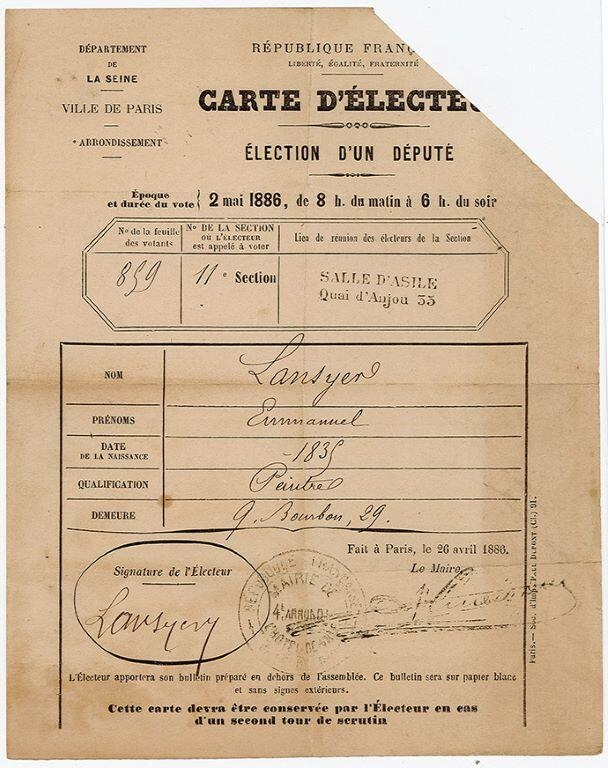 DÉPARTEMENT
DE
LA SEINE
VILLE DE PARIS
ARRONDISSEMENT
RÉPUBLIQUE FRANÇ
LIBERTÉ, ÉGALITÉ, FRATERNITÉ
CARTE D'ÉLECTEU
ÉLECTION D'UN DÉPUTÉ
Époque
et durée du vote { 2 mai 1886, de 8 h. du matin à 6 h. du soir
No de la feuille des votants
No DE LA SECTION
OU L'ÉLECTEUR
est appelé à voter
Lieu de réunion des électeurs de la Section
859
11e Section
SALLE D'ASILE
Quai d'Anjou 33
NOM Lansyer
PRÉNOMS Emmanuel
DATE
DE LA NAISSANCE 1835
QUALIFICATION Peintre
DEMEURE q. Bourbon, 29.
Fait à Paris, le 26 avril 1886.
Le Maire
Signature de l'Électeur
Lansyer
RÉPUBLIQUE FRANÇAISE
MAIRIE DU
4e ARROND
L'Électeur apportera son bulletin préparé en dehors de l'assemblée. Ce bulletin sera sur papier blanc
et sans signes extérieurs.
Cette carte devra être conservée par l'Électeur en cas
d'un second tour de scrutin
Paris.— Soc. d'Imp. PAUL DUPONT (Cl.) 91.